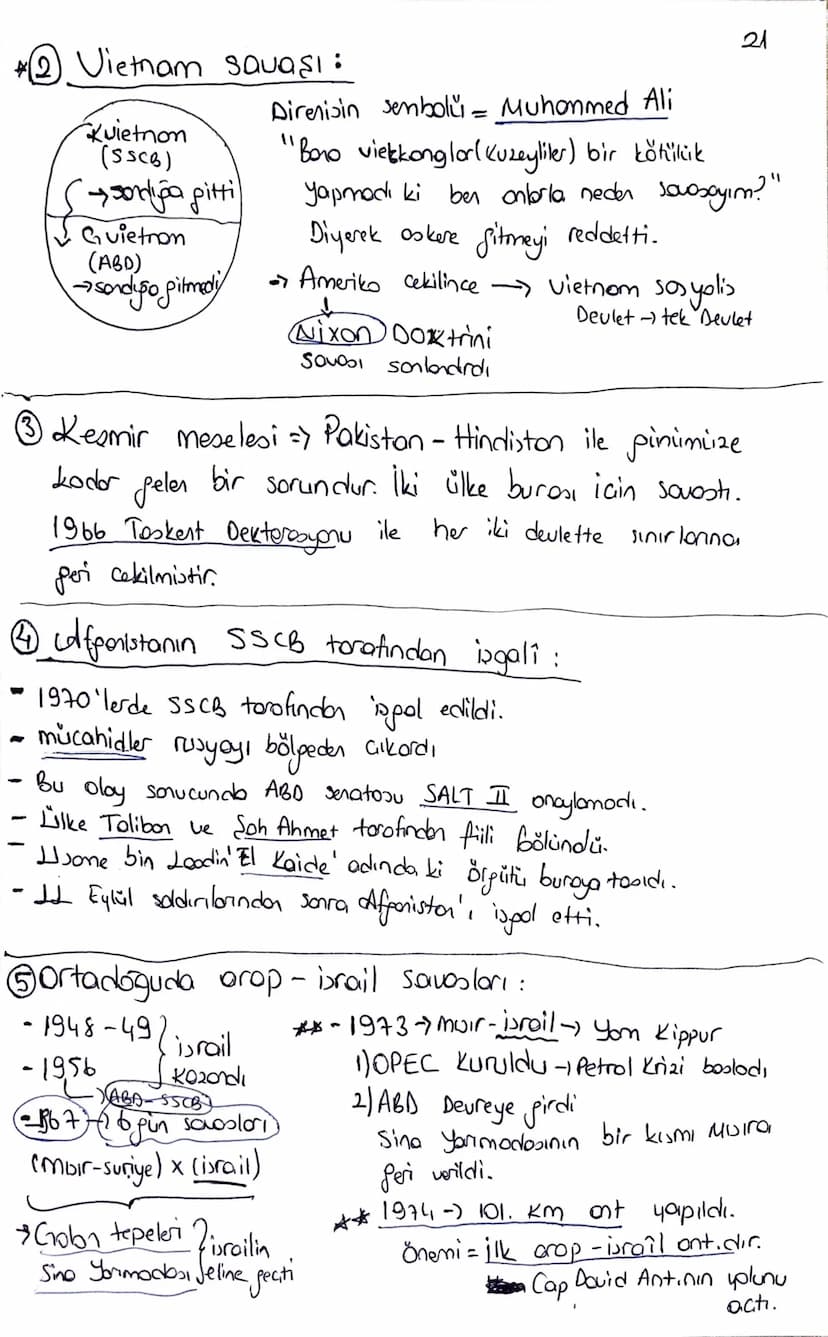 21
*② Vietnam savaşı :
K vietnam
(SSCB)
→ sandığa gitti
G vietnam
(ABD)
→ sandığa gitmedi
Direnişin sembolü = Muhammed Ali
"Bana vietkonglar (kuzeyliler) bir kötülük
yapmadı ki ben onlarla neden savaşayım?"
Diyerek askere gitmeyi reddetti.
→ Amerika çekilince → Vietnam sosyalis
Devlet → tek Devlet
Nixon Doktrini
savaşı sonlandırdı
③ Keşmir meselesi => Pakistan - Hindistan ile günümüze
kadar gelen bir sorundur. İki ülke burası için savaştı.
1966 Taşkent Dekterasyonu ile her iki devlette sınırlarına
geri çekilmiştir.
④ Afganistanın SSCB tarafından işgali :
- 1970'lerde SSCB tarafından işgal edildi.
- mücahidler rusyayı bölgeden çıkardı
- Bu olay sonucunda ABD senatosu SALT II onaylamadı.
- Ülke Taliban ve Şah Ahmet tarafından fiili bölündü.
- Usame bin Laadin 'El Kaide' adında ki örgütü buraya taşıdı.
- 11 Eylül saldırılarından sonra Afganistan'ı işgal etti.
⑤ Ortadoğuda arap - israil savaşları :
- 1948 - 49
- 1956
israil
kazandı
→ ABD-SSCB
- 1967 → 6 gün savaşları
(Mısır-suriye) x (israil)
→ Golan tepeleri
Sina Yarımadası
israilin
eline geçti
** - 1973 → mısır-israil → Yom Kippur
1) OPEC Kuruldu → Petrol Krizi başladı
2) ABD Devreye girdi
Sina Yarımadasının bir kısmı Mısıra
geri verildi.
** 1974 → 101. Km ant yapıldı.
Önemi = ilk arap - israil ant.dır.
Cap David Ant.nın yolunu
açtı.